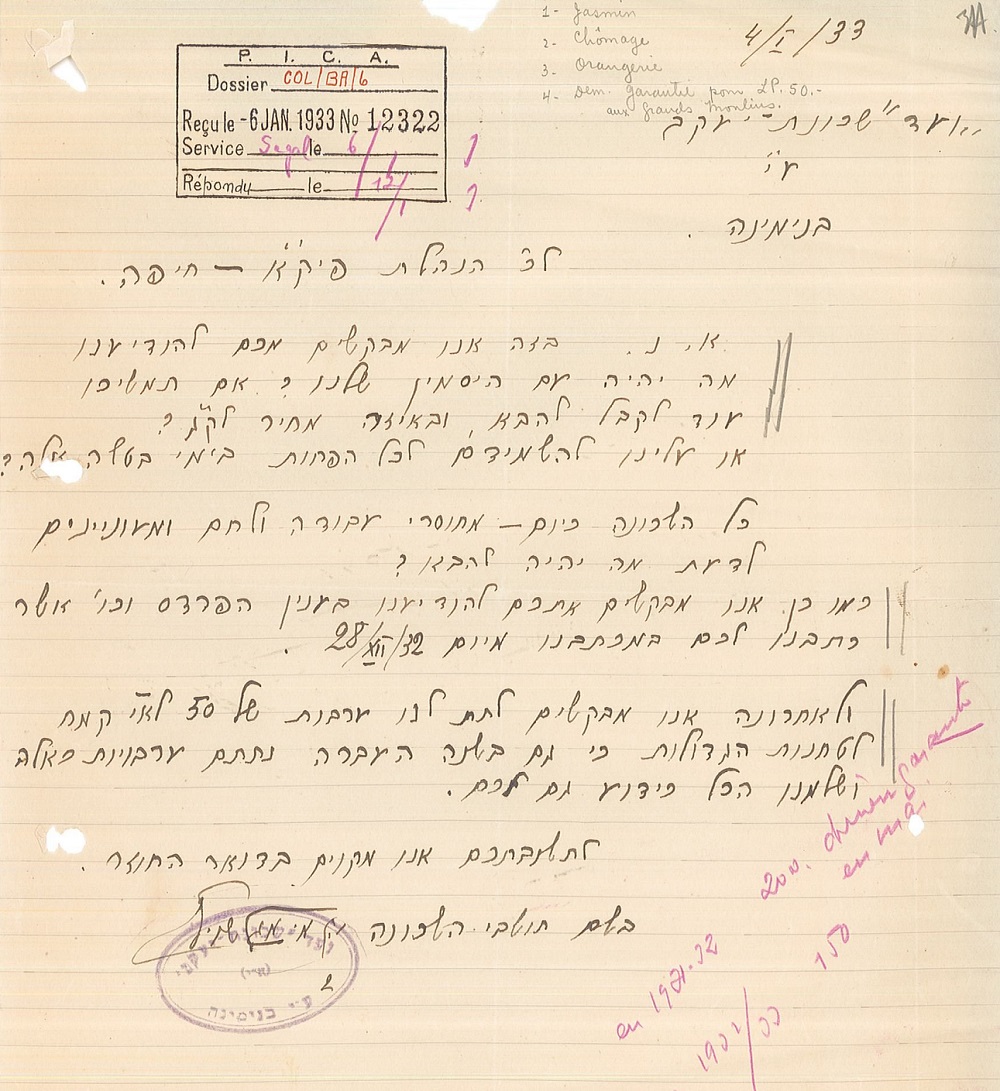 1- Jasmin
2- Chômage
3- Orangerie
4- Dem. garantie pour LP. 50.-
aux Grands Moulins.
4/I/33
P. I. C. A.
Dossier COL/BR/6
Reçu le -6 JAN. 1933 No 12322
Service Segal le 6/1
Répondu le 12/1
ועד "שכונת-יעקב"
ע"י
בנימינה.
לכ' הנהלת פיק"א – חיפה.
א. נ. בזה אנו מבקשים מכם להודיענו
מה יהיה עם היסמין שלנו? אם תמשיכו
עוד לקבל להבא, ובאיזה מחיר לק"ג?
או עלינו להשמידם לכל הפחות בימי בטשה אלה?
כל השכונה כיום – מחוסרי עבודה ולחם ומעוניינים
לדעת מה יהיה להבא?
כמו כן אנו מבקשים אתכם להודיענו בענין הפרדס וכו' אשר
כתבנו לכם במכתבנו מיום 28/XII/32.
ולאחרונה אנו מבקשים לתת לנו ערבות של 50 לא"י קמח
לטחנות הגדולות כי גם בשנה העברה נתתם ערבויות כאלה
ושלמנו הכל כידוע גם לכם.
לתשובתכם אנו מקוים בדואר החוזר.
בשם תושבי השכונה
ע.י בנימינה
200. garantie
en 1931-32
150
1932/33